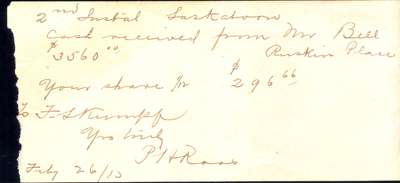 2nd Instal Saskatoon
Cash received from Mr Bell
$3560.00 Ruskin Place
Your share 1/12 $296.66
To F. S Kumpf
Yrs truly
P H Roos
Feby 26/13